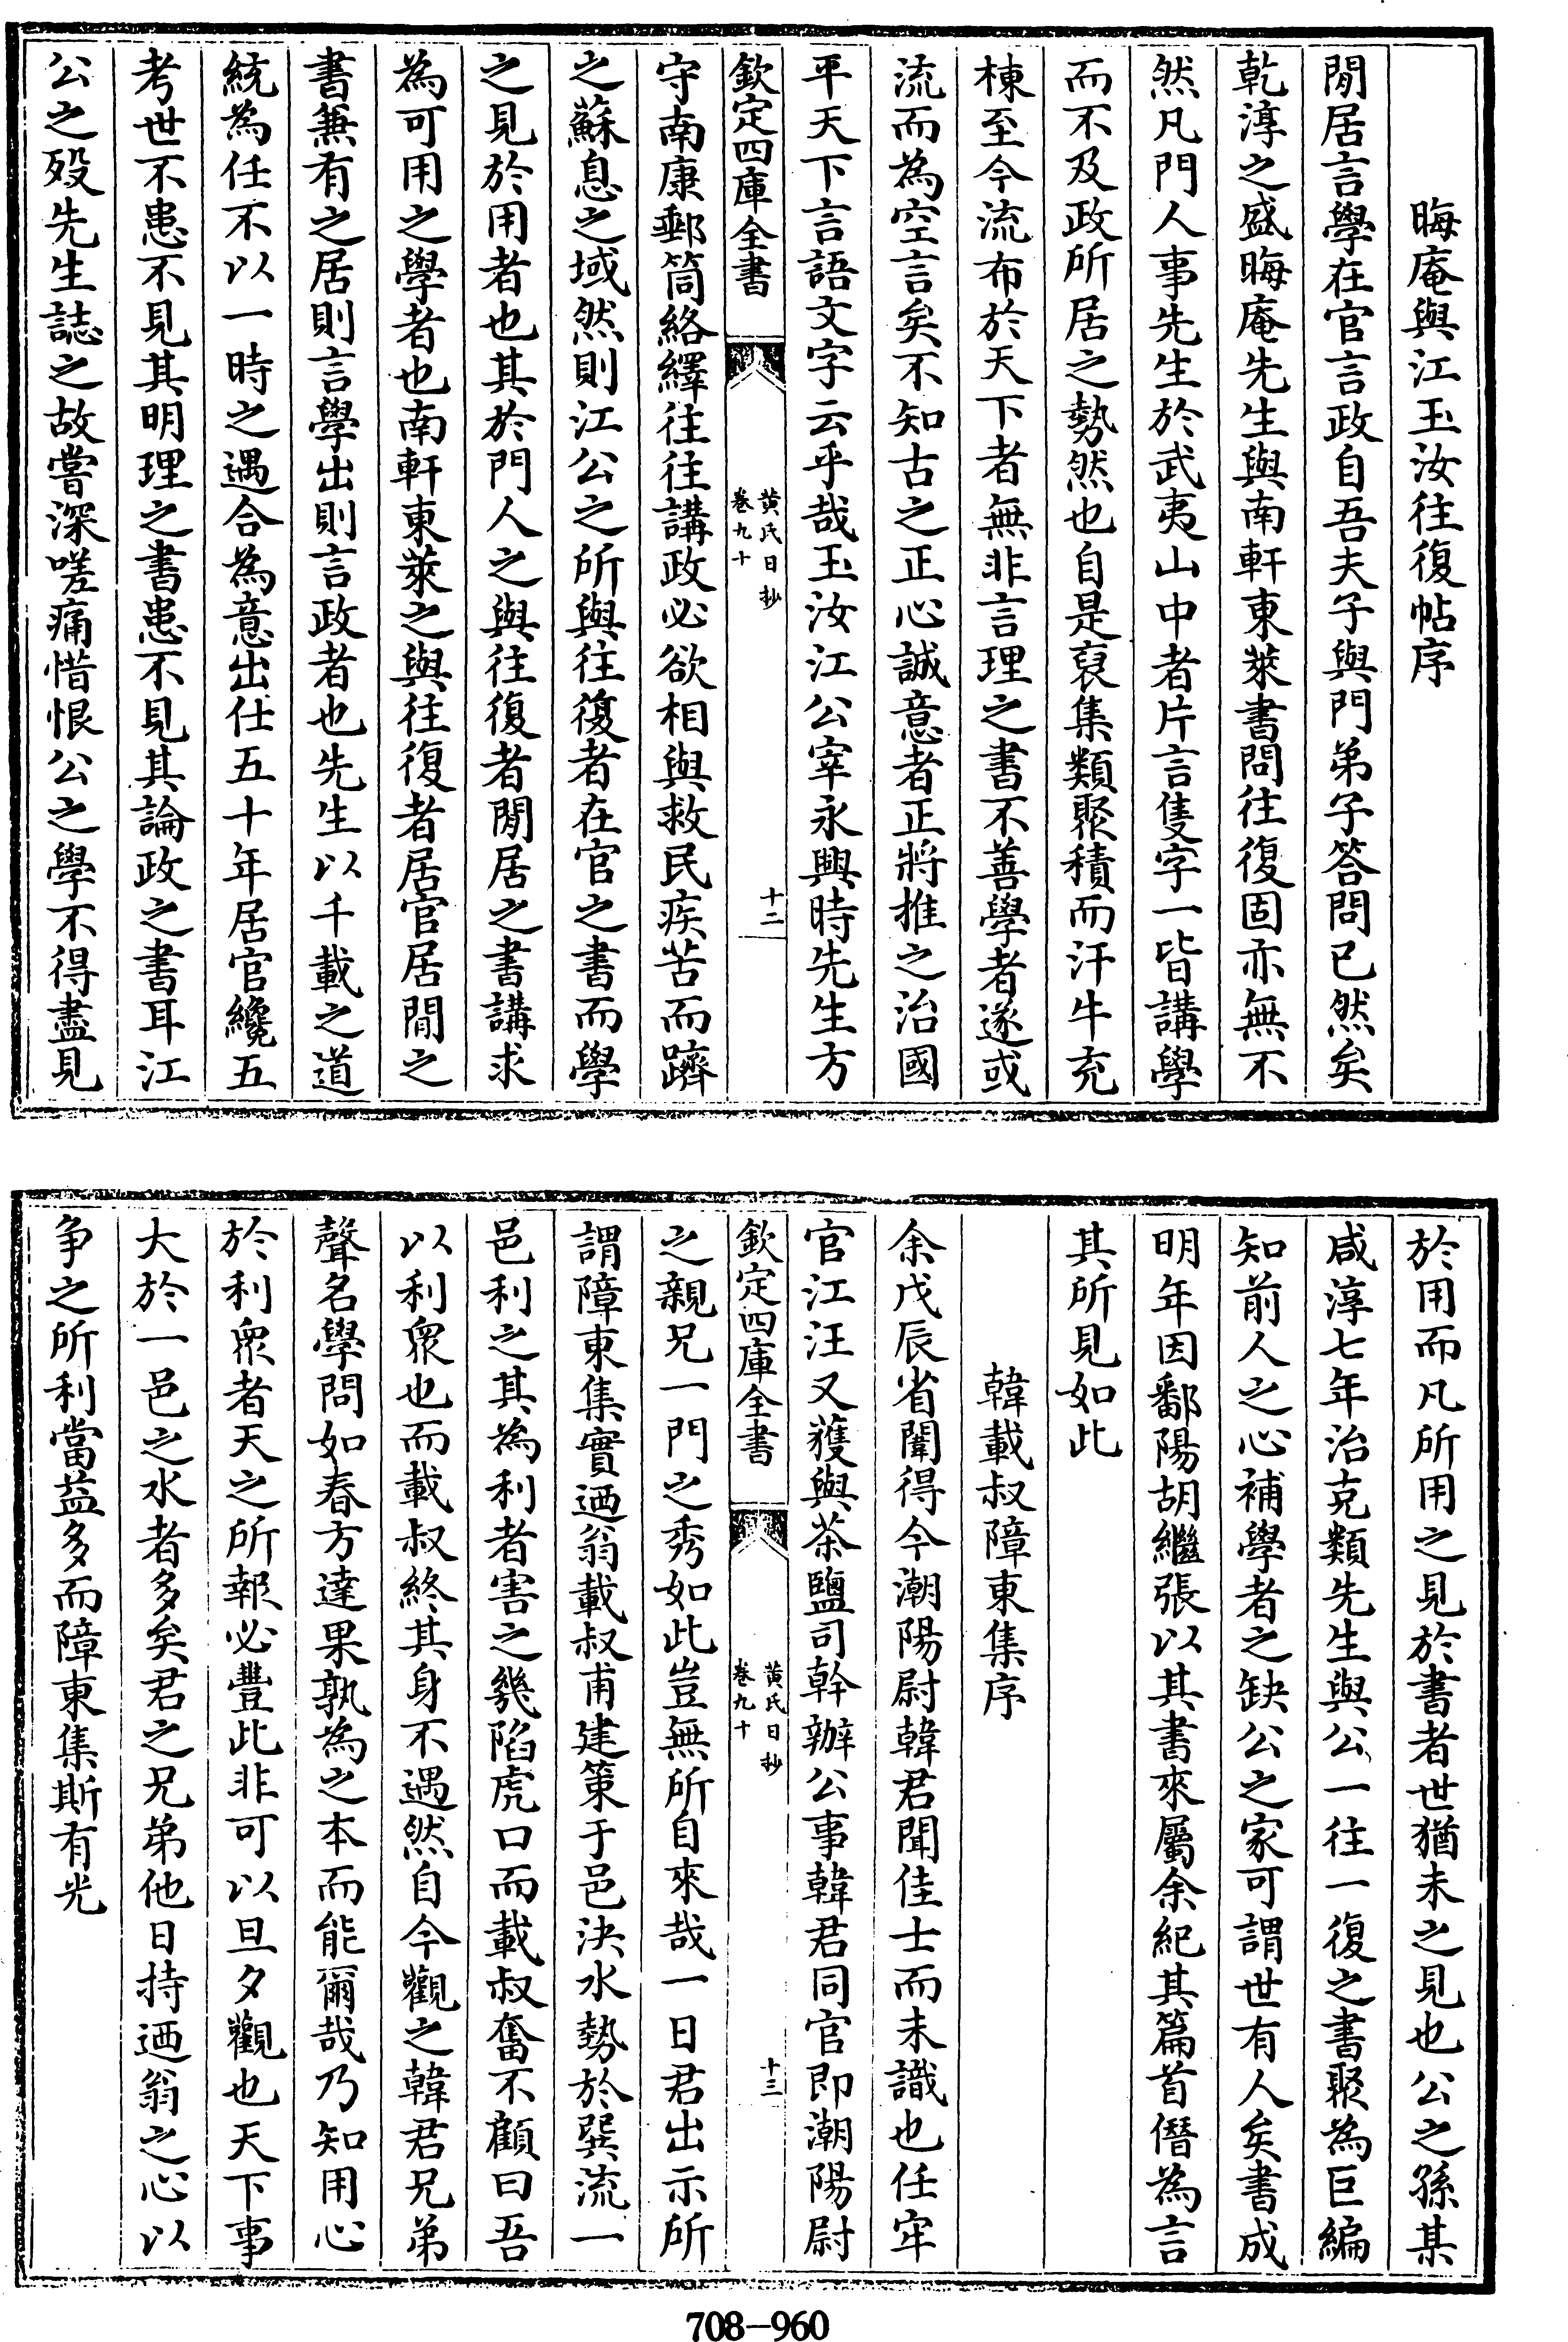 晦庵與江玉汝往復帖序
閒居言學在官言政自吾夫子與門弟子答問已然矣
乾淳之盛晦庵先生與南軒東萊書問往復固亦無不
然凡門人事先生於武夷山中者片言隻字一皆講學
而不及政所居之勢然也自是裒集類聚積而汗牛充
棟至今流布於天下者無非言理之書不善學者遂或
流而為空言矣不知古之正心誠意者正將推之治國
平天下言語文字云乎哉玉汝江公宰永興時先生方
欽定四庫全書
黄氏日抄
卷九十
十二
守南康郵筒絡繹往往講政必欲相與救民疾苦而躋
之蘇息之域然則江公之所與往復者在官之書而學
之見於用者也其於門人之與往復者閒居之書講求
為可用之學者也南軒東萊之與往復者居官居閒之
書兼有之居則言學出則言政者也先生以千載之道
統為任不以一時之遇合為意出仕五十年居官纔五
考世不患不見其明理之書患不見其論政之書耳江
公之歿先生誌之故嘗深嗟痛惜恨公之學不得盡見
於用而凡所用之見於書者世猶未之見也公之孫某
咸淳七年治克類先生與公一往一復之書聚為巨編
知前人之心補學者之缺公之家可謂世有人矣書成
明年因鄱陽胡繼張以其書來屬余紀其篇首僭為言
其所見如此
韓載叔障東集序
余戊辰省闈得今潮陽尉韓君聞佳士而未識也任牢
官江汪又獲與茶鹽司幹辦公事韓君同官即潮陽尉
欽定四庫全書
黄氏日抄
卷九十
十三
之親兄一門之秀如此豈無所自來哉一日君出示所
謂障東集實迺翁載叔甫建策于邑決水勢於巽流一
邑利之其為利者害之幾陷虎口而載叔奮不顧曰吾
以利衆也而載叔終其身不遇然自今觀之韓君兄弟
聲名學問如春方達果孰為之本而能爾哉乃知用心
於利衆者天之所報必豐此非可以旦夕觀也天下事
大於一邑之水者多矣君之兄弟他日持迺翁之心以
争之所利當益多而障東集斯有光
708—960